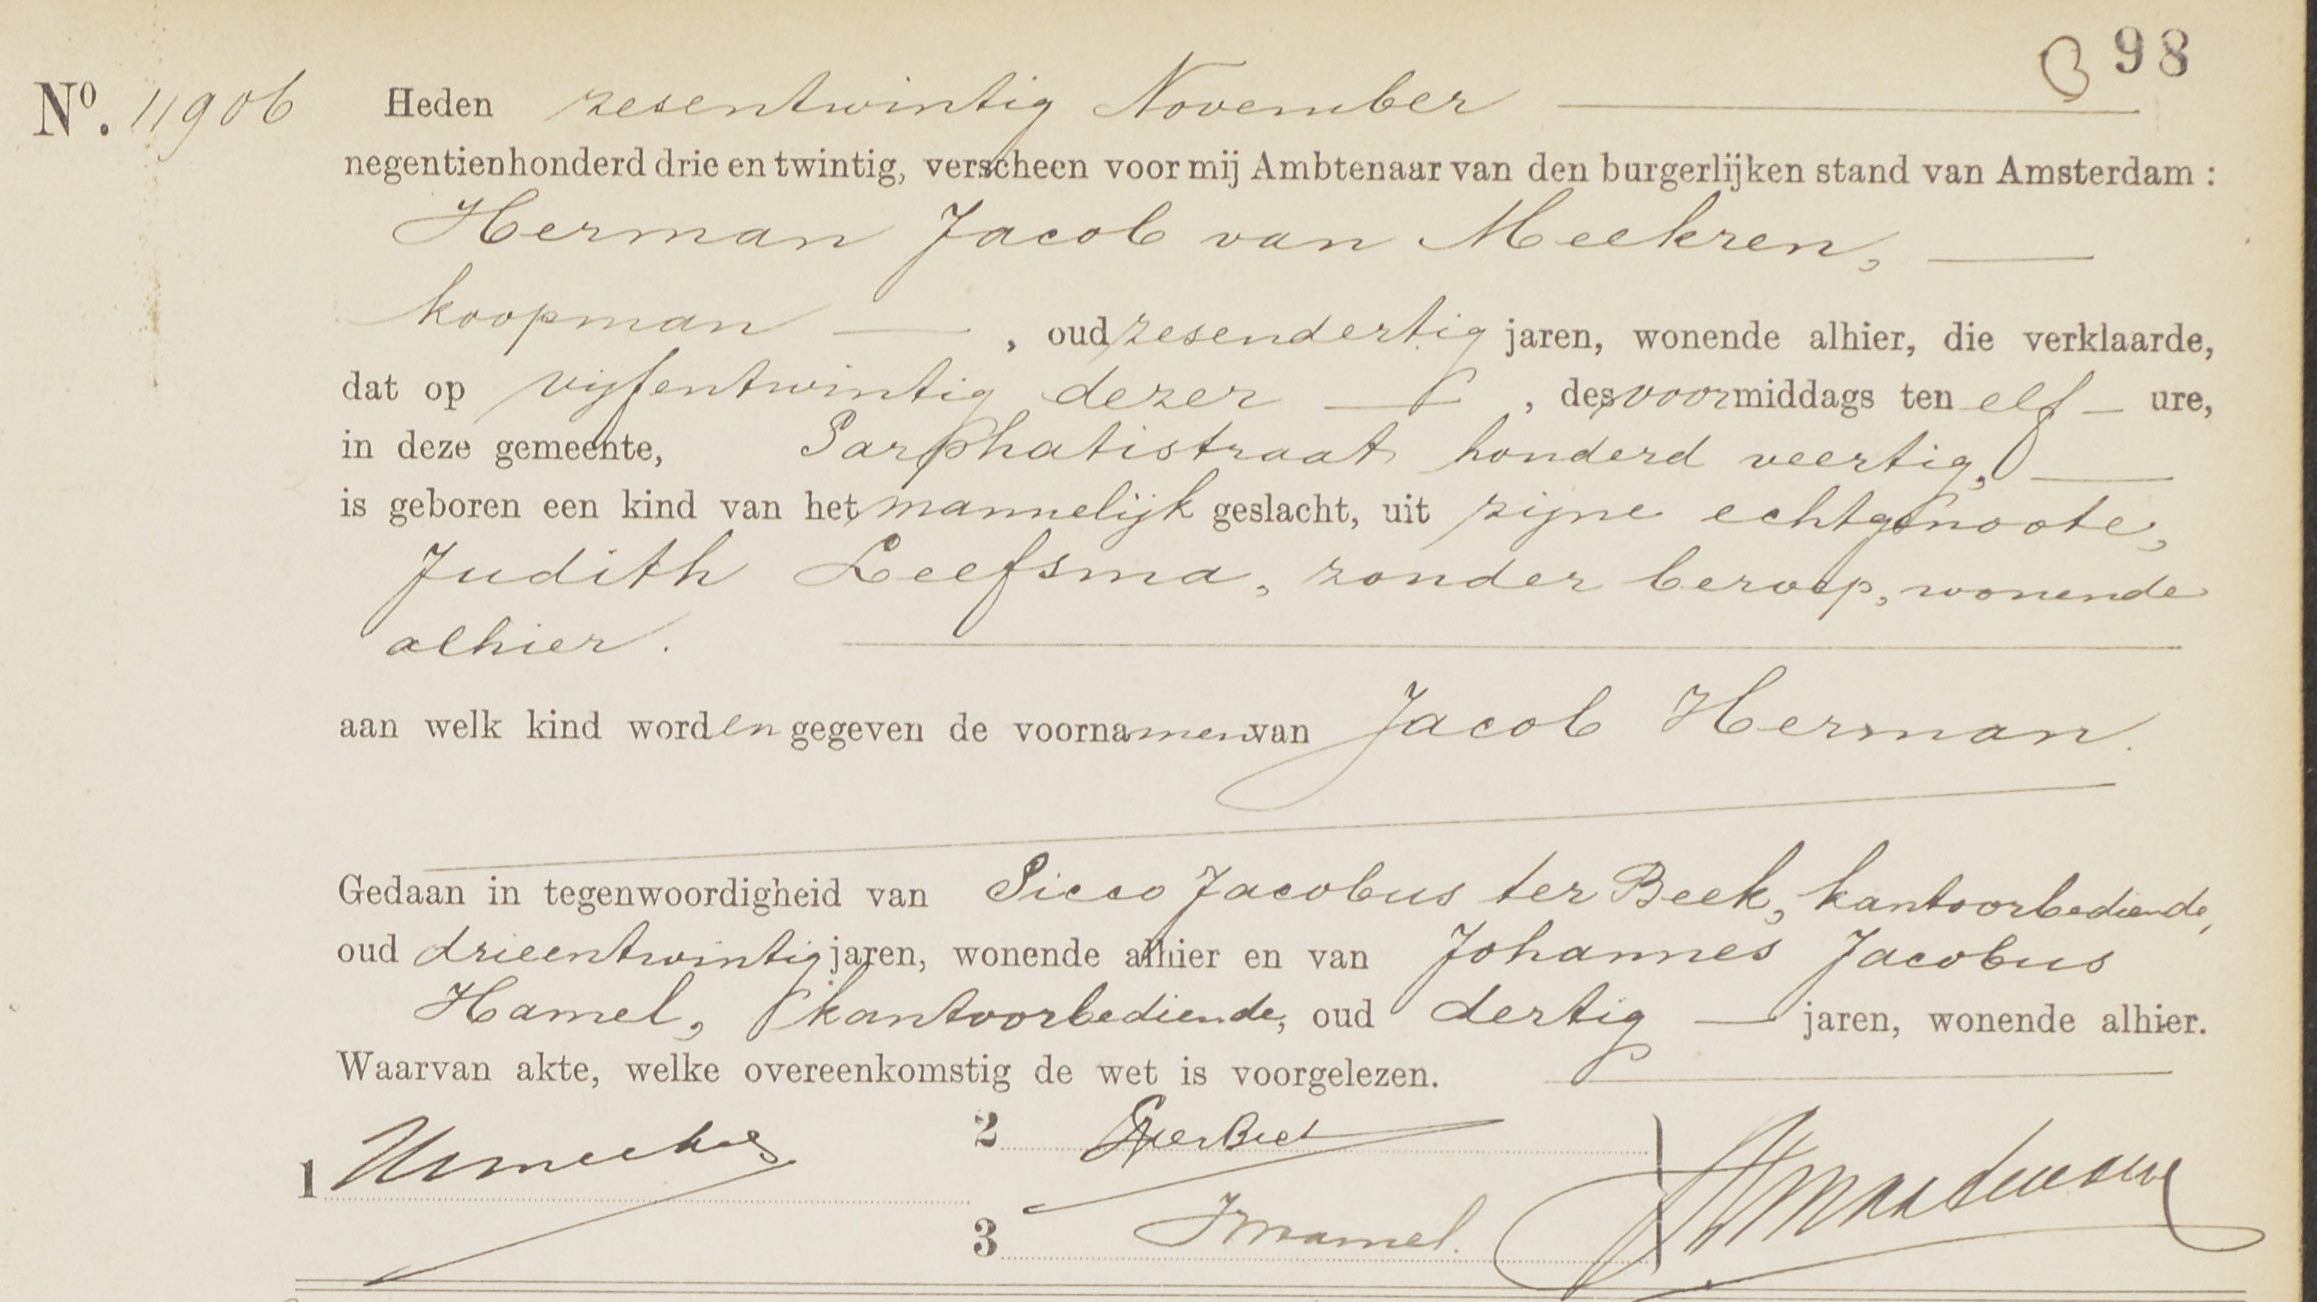 98
Nº. 11906 Heden zesentwintig November
negentienhonderd drie en twintig, verscheen voor mij Ambtenaar van den burgerlijken stand van Amsterdam :
Herman Jacob van Meekren,
koopman , oud zesendertig jaren, wonende alhier, die verklaarde,
dat op vijfentwintig dezer , des voormiddags ten elf ure,
in deze gemeente, Sarphatistraat honderd veertig,
is geboren een kind van het mannelijk geslacht, uit zijne echtgenoote,
Judith Leefsma, zonder beroep, wonende
alhier.
aan welk kind worden gegeven de voornamen van Jacob Herman.
Gedaan in tegenwoordigheid van Sicco Jacobus ter Beek, kantoorbediende,
oud drieentwintig jaren, wonende alhier en van Johannes Jacobus
Hamel, kantoorbediende, oud dertig jaren, wonende alhier.
Waarvan akte, welke overeenkomstig de wet is voorgelezen.
1
2
3 Hamel.